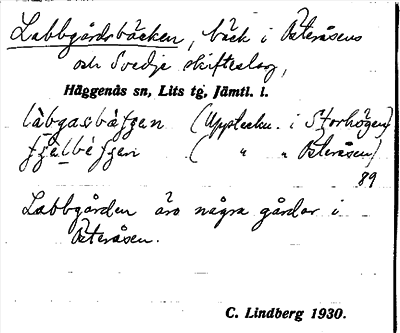 Labbgårdsbäcken, bäck i Österåsens
och Svedje skifteslag,
Häggenås sn, Lits tg, Jämtl. l.
(Uppteckn. i Storhögen)
( " " Österåsen)
89
Labbgården äro några gårdar i
Österåsen.
C. Lindberg 1930.